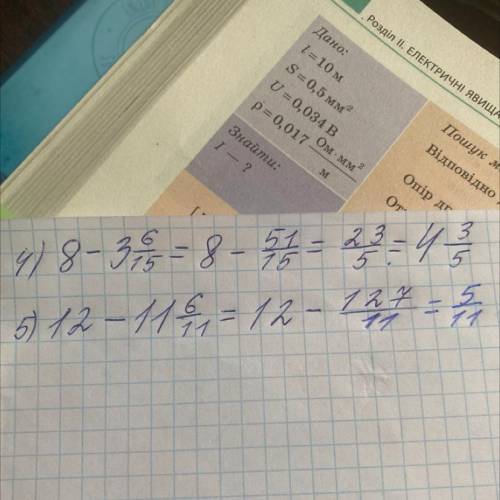 Розділ II. ЕЛЕКТРИЧНІ ЯВИЩА
Дано:
l = 10 м
S = 0,5 мм²
U = 0,034 В
ρ = 0,017 Ом·мм²/м
Знайти:
I — ?
Пошук
Відповідно
Опір
4) 8 - 3 6/15 = 8 - 51/15 = 23/5 = 4 3/5
5) 12 - 11 6/11 = 12 - 127/11 = 5/11